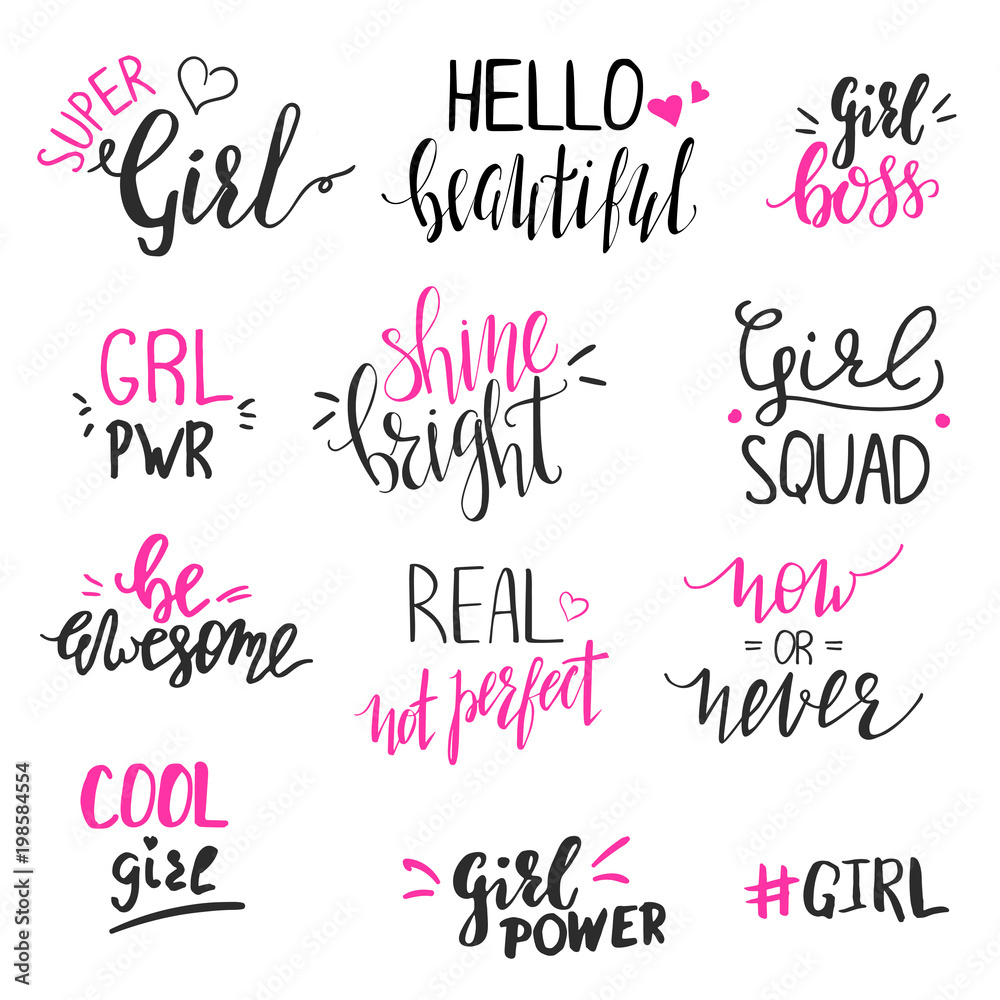 SUPER
Girl
HELLO
beautiful
girl
boss
GRL
PWR
shine
bright
Girl
SQUAD
be
awesome
REAL
not perfect
now
OR
never
COOL
girl
girl
POWER
#GIRL
Adobe Stock | #198584554